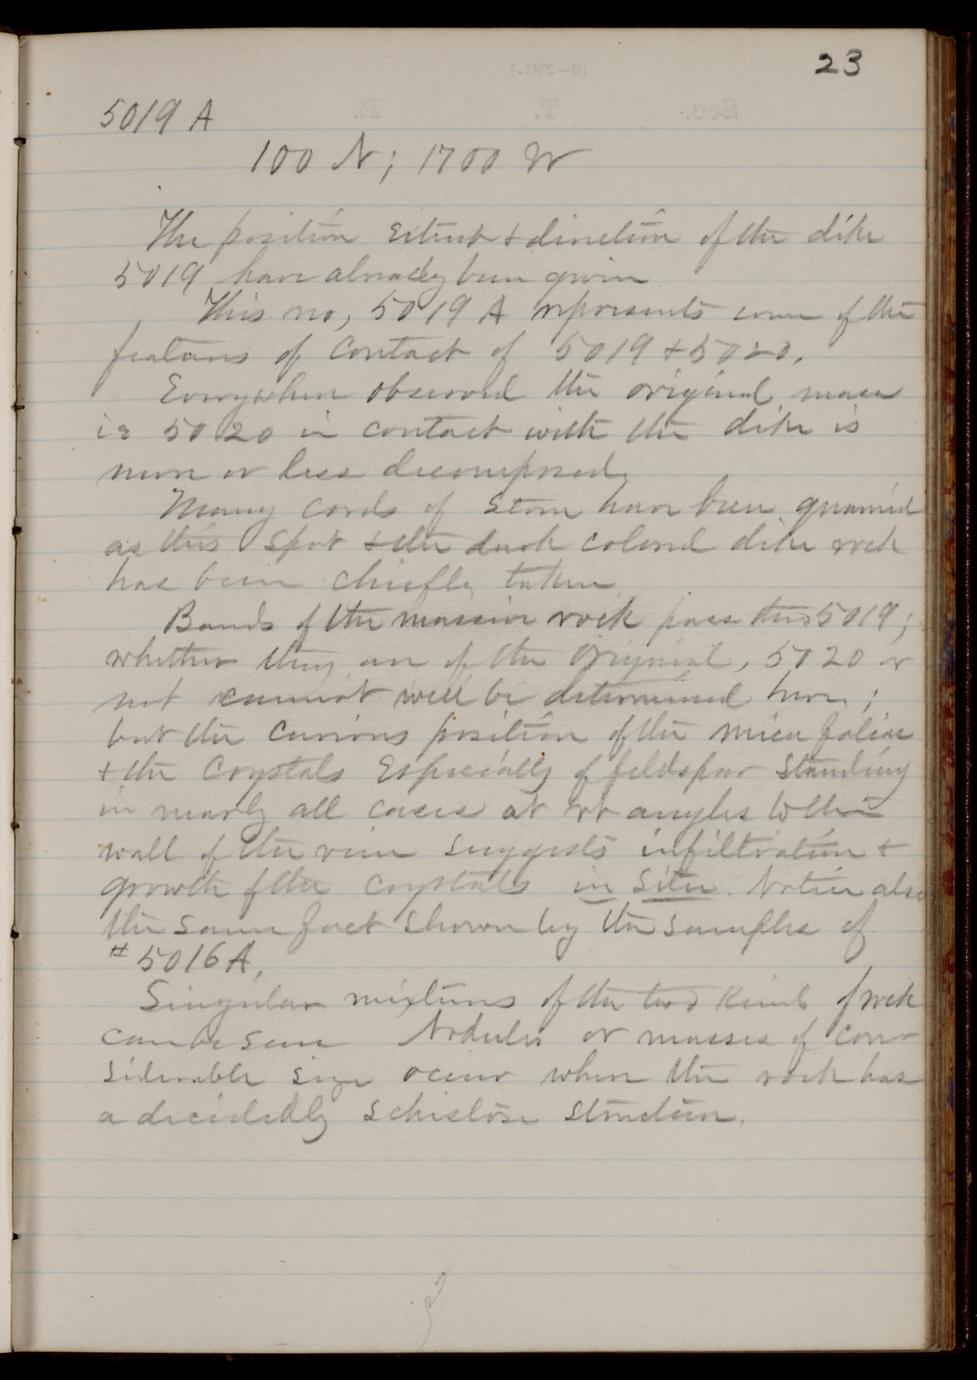 23
5019 A
100 N; 1700 W
The position extent & direction of the dike
5019 have already been given
This no, 5019 A represents some of the
features of contact of 5019 & 5020.
Everywhere observed the original mass
is 5020 in contact with the dike is
more or less decomposed
Many cords of stone have been quarried
as this spot & the dark colored dike rock
has been chiefly taken
Bands of the massive rock pass thro 5019;
whether they are of the original, 5020 or
not cannot well be determined here;
but the curious position of the mica foliae
& the crystals especially of feldspar standing
in nearly all cases at rt angles to the
wall of the vein suggests infiltration &
growth of the crystals in situ. Notice also
the same fact shown by the samples of
# 5016A.
Singular mixtures of the two kinds of rock
can be seen Nodules or masses of con-
siderable size occur when the rock has
a decidedly schistose structure.